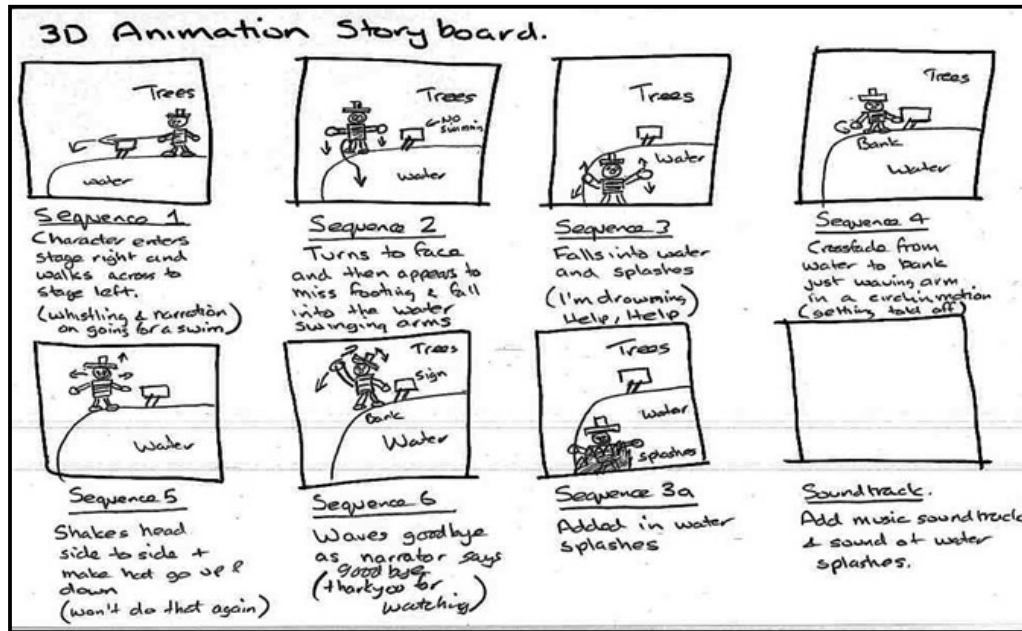 3D Animation Storyboard.
Trees
Water
Sequence 1
Character enters
stage right and
walks across to
stage left.
(whistling & narration
on going for a swim)
Trees
No
swimming
Water
Sequence 2
Turns to face
and then appears to
miss footing & fall
into the water
swinging arms
Trees
Water
Sequence 3
Falls into water
and splashes
(I'm drowning
Help, Help)
Trees
Bank
Water
Sequence 4
Crossfade from
water to bank
just waving arm
in a motion
(getting told off)
Water
Sequence 5
Shakes head
side to side +
make hat go up &
down
(won't do that again)
Trees
Sign
Bank
Water
Sequence 6
Waves goodbye
as narrator says
goodbye
(thankyou for
watching)
Trees
Water
splashes
Sequence 3a
Added in water
splashes
Soundtrack.
Add music soundtrack
& sound of water
splashes.